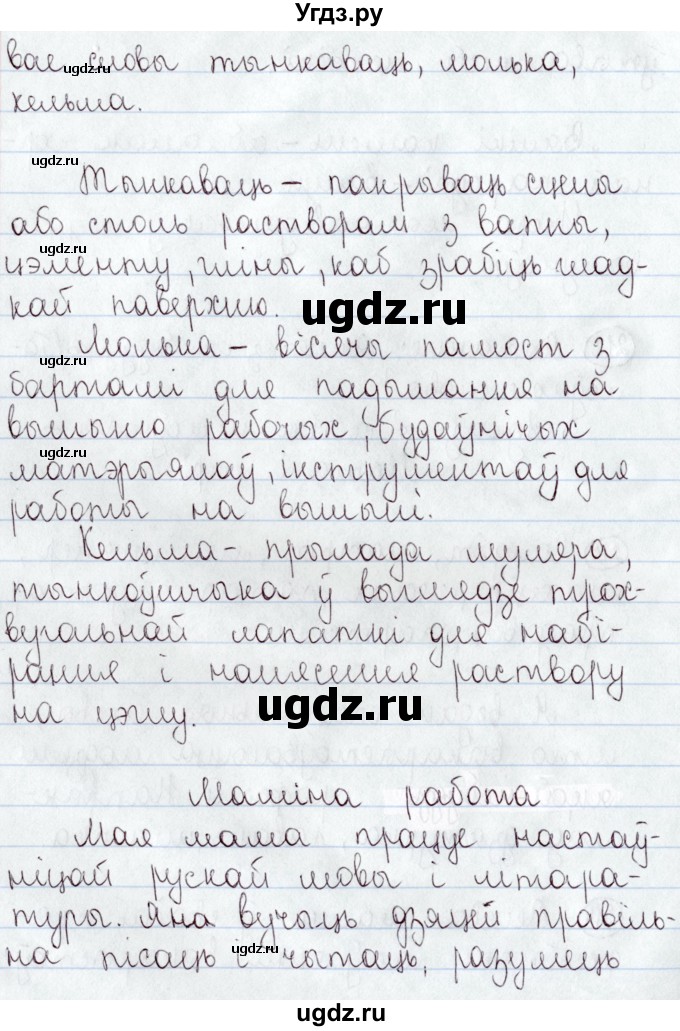 Угдз.ру
вае словы тынкаваць, люлька,
кельма.
Тынкаваць – пакрываць сцены
або столь растворам з вапны,
цэменту, гліны, каб зрабіць глад-
кай паверхню.
Люлька – вісячы памост з
бартамі для падымання на
вышыню рабочых, будаўнічых
матэрыялаў, інструментаў для
работы на вышыні.
Кельма – прылада муляра,
тынкоўшчыка ў выглядзе трох-
вугольнай лапаткі для набі-
рання і нанясення раствору
на цэглу.
Маміна работа
Мая мама працуе настаў-
ніцай рускай мовы і літара-
туры. Яна вучыць дзяцей правіль-
на пісаць і чытаць, разумець
ugdz.ru
ugdz.ru
ugdz.ru
ugdz.ru
ugdz.ru
ugdz.ru
ugdz.ru
ugdz.ru
ugdz.ru